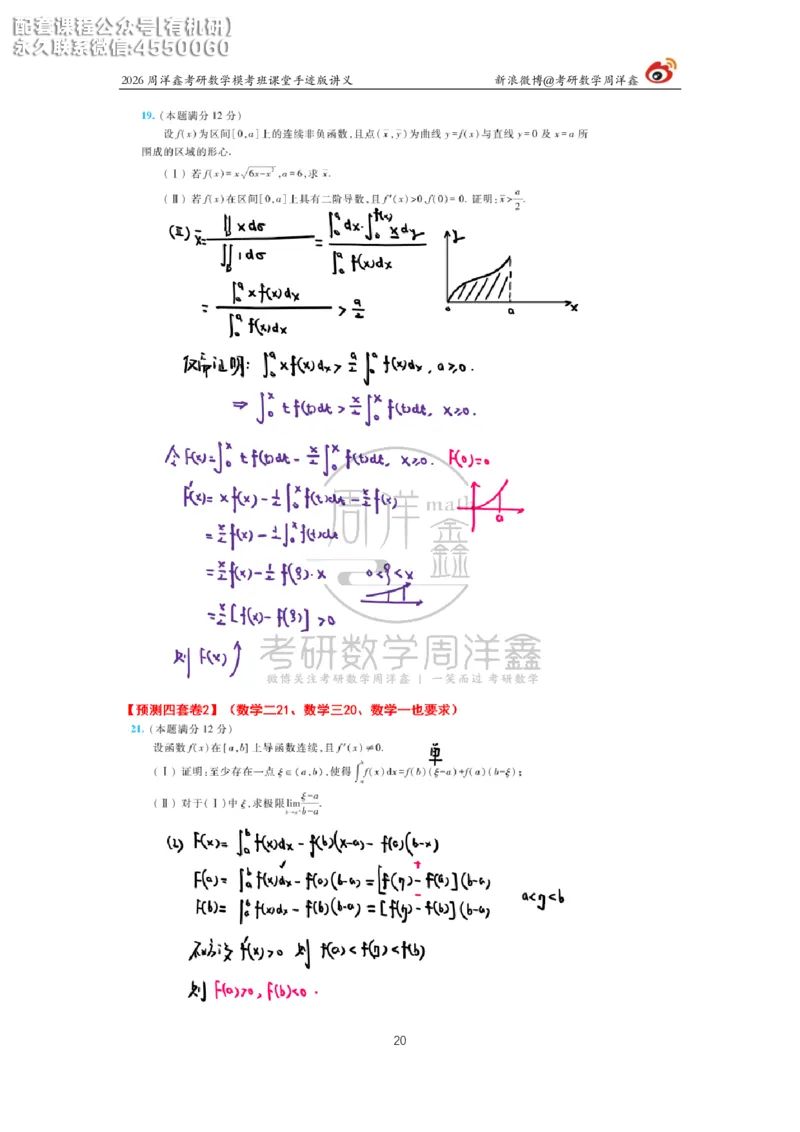 配套课程公众号[有机研]
永久联系微信:4550060
2026 周洋鑫考研数学模考班课堂手迹版讲义 新浪微博@考研数学周洋鑫
19. (本题满分 12 分)
设 f(x) 为区间[0,a]上的连续非负函数,且点(x̄,ȳ)为曲线 y=f(x)与直线 y=0 及 x=a 所
围成的区域的形心.
(Ⅰ) 若 f(x)=x√(6x-x²),a=6,求 x̄.
(Ⅱ) 若 f(x)在区间[0,a]上具有二阶导数,且 f″(x)>0,f(0)=0. 证明:x̄>a/2.
(Ⅱ) x̄ = ∬_D x dσ / ∬_D 1 dσ = ∫₀^a dx·∫₀^{f(x)} x dy / ∫₀^a f(x)dx
= ∫₀^a x f(x)dx / ∫₀^a f(x)dx > a/2
y
o a x
仅需证明: ∫₀^a x f(x)dx > a/2 ∫₀^a f(x)dx, a≥0.
⇒ ∫₀^x t f(t)dt > x/2 ∫₀^x f(t)dt, x≥0.
令 F(x)=∫₀^x t f(t)dt - x/2 ∫₀^x f(t)dt, x≥0. F(0)=0
F′(x)= x f(x) - 1/2 ∫₀^x f(t)dt - x/2 f(x)
a
= x/2 f(x) - 1/2 ∫₀^x f(t)dt
= x/2 f(x) - 1/2 f(ξ)·x 0<ξ<x
= x/2 [f(x)- f(ξ)] >0
则 F(x)↑
周洋 math
鑫
考研数学周洋鑫
微博关注考研数学周洋鑫 | 一笑而过 考研数学
【预测四套卷2】(数学二21、数学三20、数学一也要求)
21. (本题满分 12 分)
设函数 f(x)在[a,b]上导函数连续,且 f′(x)≠0. 单
(Ⅰ) 证明:至少存在一点 ξ∈(a,b),使得∫_a^b f(x)dx=f(b)(ξ-a)+f(a)(b-ξ);
(Ⅱ) 对于(Ⅰ)中 ξ,求极限 lim_{b→a⁺} (ξ-a)/(b-a).
(1) F(x)= ∫_a^b f(x)dx - f(b)(x-a) - f(a)(b-x)
F(a)= ∫_a^b f(x)dx - f(a)(b-a) = [f(η) - f(a)](b-a) +
F(b)= ∫_a^b f(x)dx - f(b)(b-a) = [f(η) - f(b)](b-a) - a<η<b
不妨设 f′(x)>0 则 f(a)<f(η)<f(b)
则 F(a)>0, F(b)<0.
20